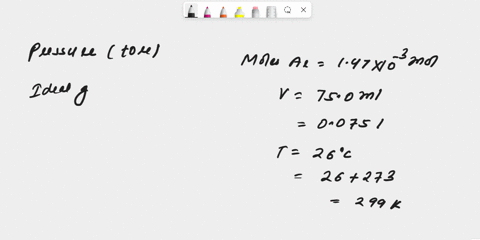 Pressure (torr)
Ideal g
Moles Ar = 1.47×10⁻³ mol
V = 75.0 ml
= 0.075 l
T = 26°C
= 26 + 273
= 299 K